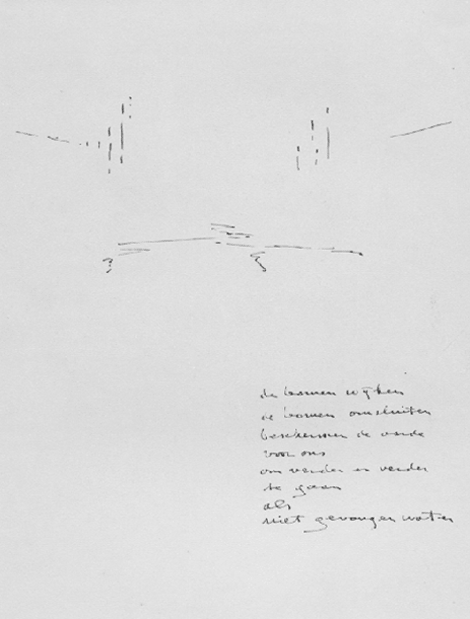 de bomen wijken
de bomen omsluiten
beschermen de aarde
voor ons
om verder en verder
te gaan
als
niet gevangen water